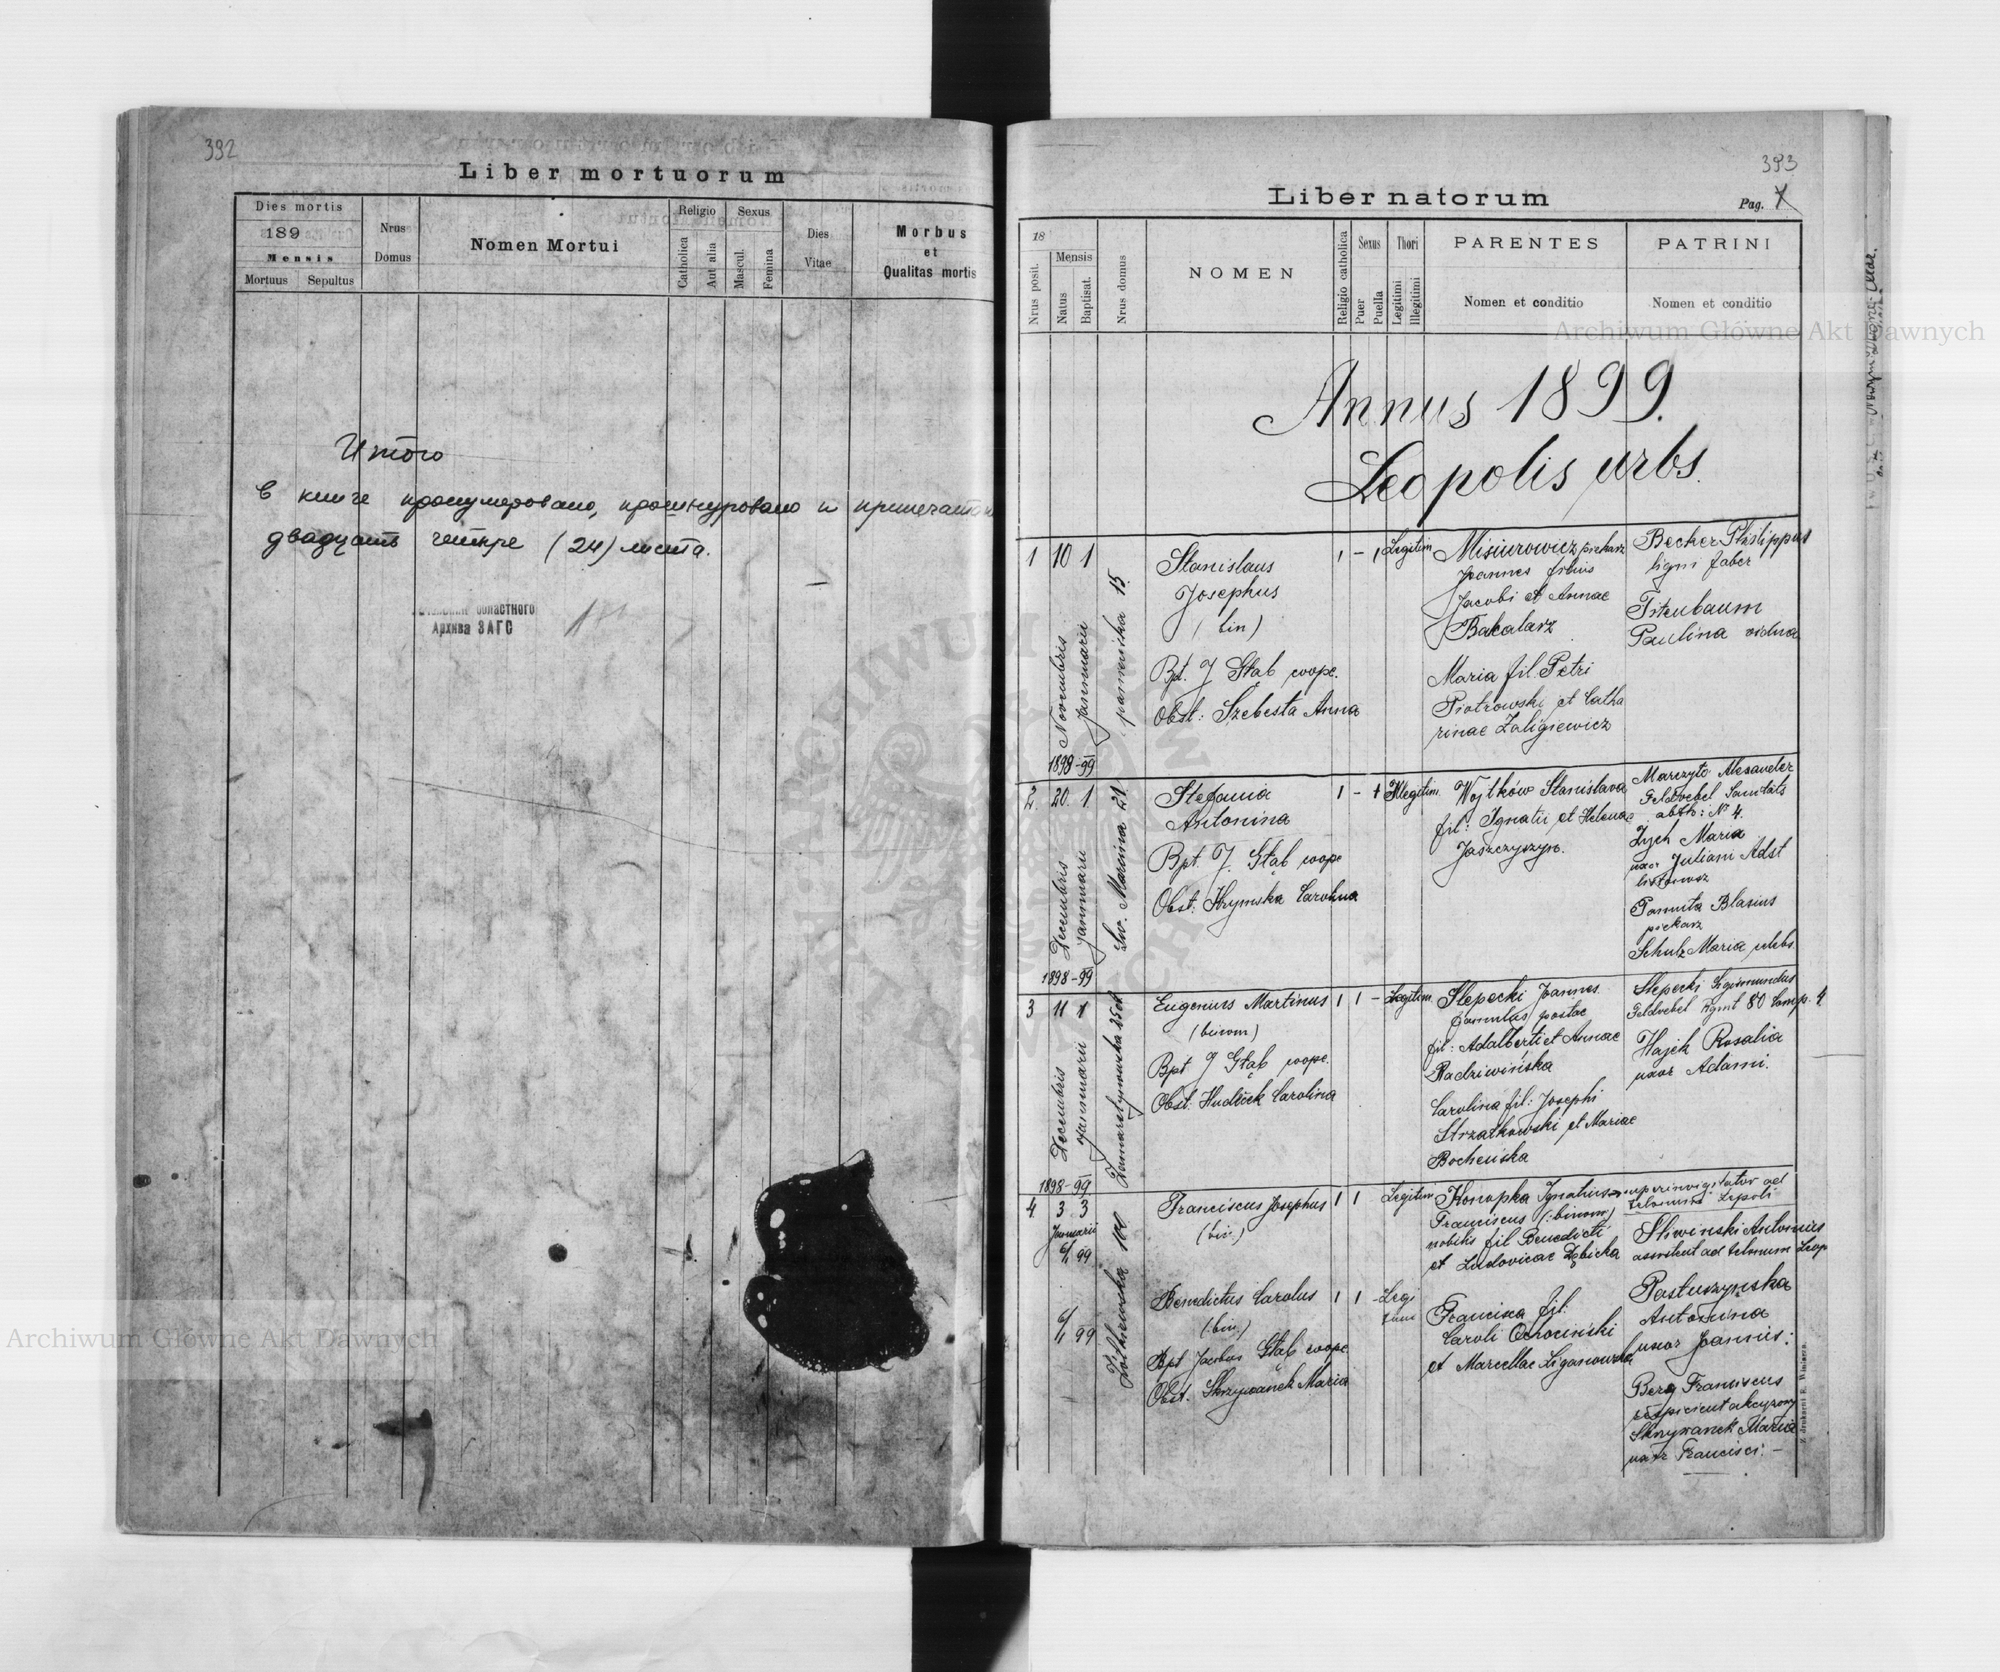 392
Liber mortuorum
Dies mortis
189
Mensis
Mortuus
Sepultus
Nrus
Domus
Nomen Mortui
Religio
Catholica
Aut alia
Sexus
Mascul.
Femina
Dies
Vitae
Morbus
et
Qualitas mortis
Итого
в книге пронумеровано, прошнуровано и
двадцать четыре (24) листа.
областного
Архива ЗАГС
393
Liber natorum
Pag.
18
Nrus posit.
Mensis
Natus
Baptisat.
Nrus domus
NOMEN
Religio catholica
Sexus
Puer
Puella
Thori
Legitimi
Illegitimi
PARENTES
Nomen et conditio
PATRINI
Nomen et conditio
Annus 1899.
Leopolis urbs.
1
10 1
Novembris
Jannuarii
1898-99
15.
Stanislaus
Josephus
(bin)
Bpt. J Głąb coope.
Obst: Szebesta Anna
1 - 1
Legitim
Misiurowicz piekarz
Joannes filius
Jacobi et Annae
Bakalarz
Maria fil. Petri
Piotrowski et Catha
rinae Zaligiewicz
Becher Philippus
ligni faber
Paulina vidua
2.
20. 1
Decembris
Jannuarii
1898-99
Św. Marcina 21.
Stefania
Antonina
Bpt. J. Głąb coope
Obst: Hrymska Carolina
1 - 1
Illegitim.
Wojtków Stanislava
fil: Ignatii et Helenae
Jaszczyszyn.
Marczyto Alexander
Feldvebel Sanitäts
abth: № 4.
Zych Maria
uxor Juliani Adst
Blasius
piekarz
Schulz Maria
3
11 1
Decembris
Jannuarii
1898-99.
Zamarstynowska
Eugenius Martinus
(binom)
Bpt J Głąb coope.
Obst: Hudeček Carolina
1 1 -
Legitim.
Slepecki Joannes
famulus postae
fil: Adalberti et Annae
Radziwińska
Carolina fil: Josephi
Strzałkowski et Mariae
Bocheńska
Slepecki Sigismundus
Feldvebel Rgmt 80 Comp. 4
Hajek Rosalia
uxor Adami.
4.
3 3
Januarii
99
Żółkiewska 100
Franciscus Josephus
(bin.)
1 1 -
Legitim
Konopka Ignatius
Franciscus (binom)
nobilis fil Benedicti
et Ludovicae Dębicka
ad
telonium
Sliwinski Antonius
assistent ad telonium Leop
99
Benedictus Carolus
(bin.)
1 1 -
Legi
time
Bpt Jacobus Głąb coope.
Obst. Skrzywanek Maria
Francisca fil:
Caroli Ochociński
et Marcellae
Pastuszynska
Antonina
uxor Joannis:
Berg Franciscus
Skrzywanek Maria
uxor Francisci. -
Z drukarni E. Winiarza.
Archiwum Główne Akt Dawnych
Archiwum Główne Akt Dawnych